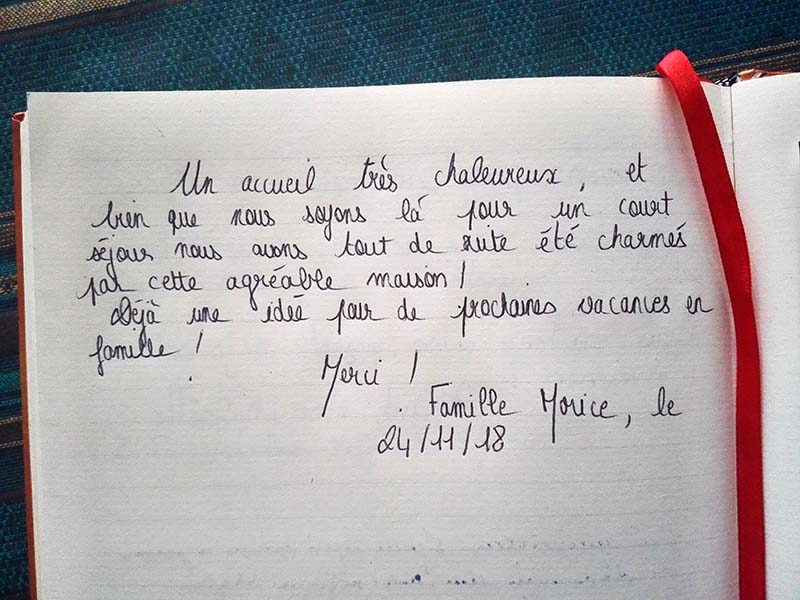 Un accueil très chaleureux, et
bien que nous soyons là pour un court
séjour nous avons tout de suite été charmés
par cette agréable maison !
Déjà une idée pour de prochaines vacances en
famille !
Merci !
Famille Morice, le
24/11/18